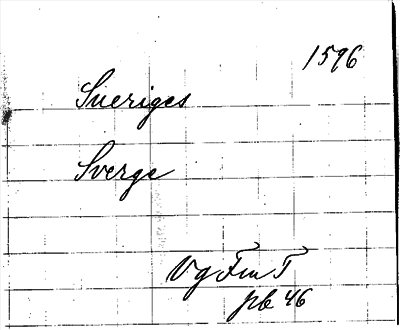 1596
Sveriges
Sverge
Vg Fm T
pb 46